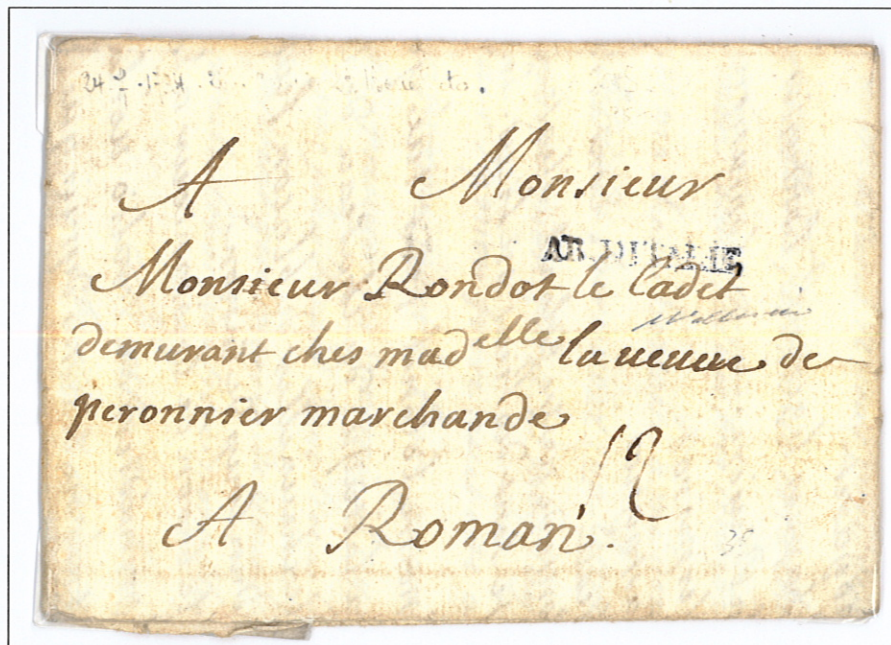 A Monsieur
AR. DITALIE
Monsieur Rondot le Cadet
demurant ches madelle la veuue de
peronnier marchande
12
A Roman.
35